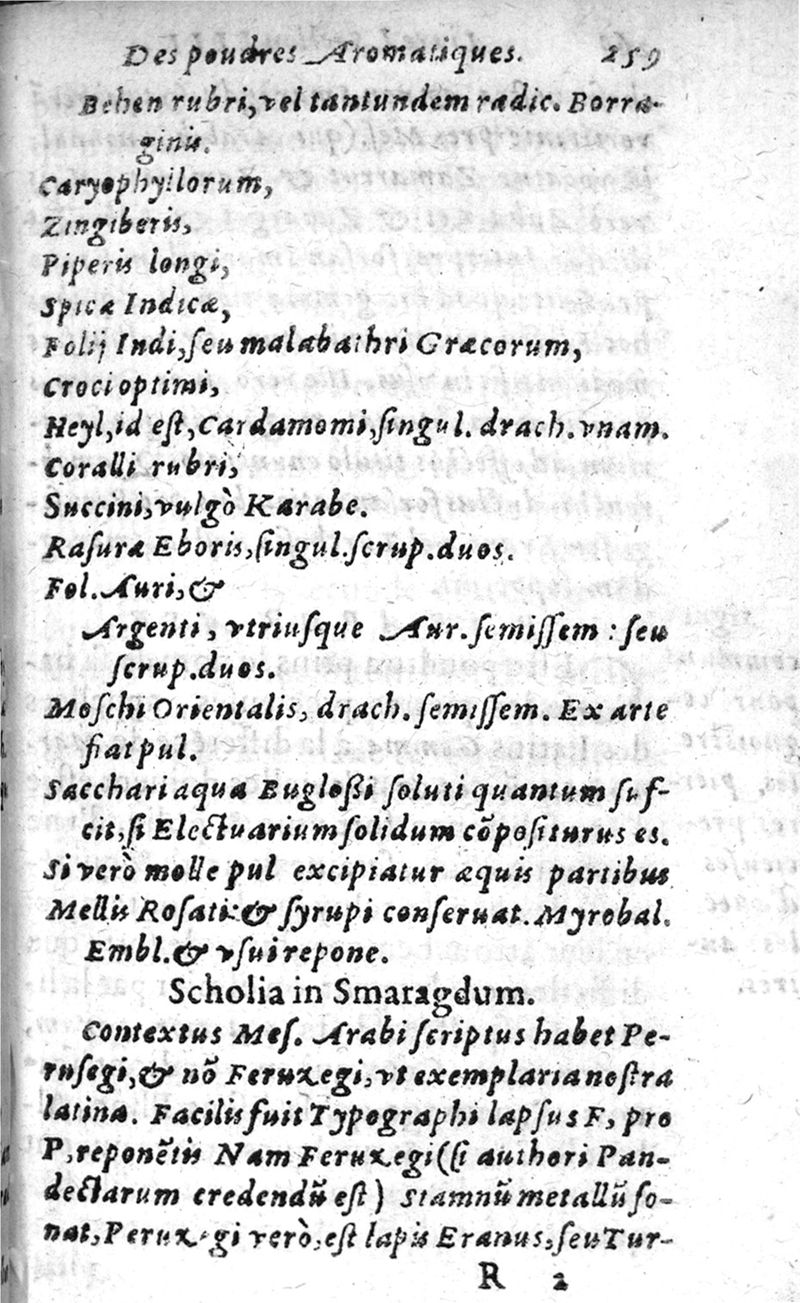 Des poudres Aromatiques. 259
Behen rubri, vel tantundem radic. Borra-
ginis.
Caryophyllorum,
Zingiberis,
Piperis longi,
Spicæ Indicæ,
Folij Indi, ſeu malabathri Græcorum,
Croci optimi,
Heyl, id eſt, Cardamomi, ſingul. drach. vnam.
Coralli rubri,
Succini, vulgò Karabe.
Raſuræ Eboris, ſingul. ſcrup. duos.
Fol. Auri, &
Argenti, vtriuſque Aur. ſemiſſem : ſeu
ſcrup. duos.
Moſchi Orientalis, drach. ſemiſſem. Ex arte
fiat pul.
Sacchari aqua Bugloßi ſoluti quantum ſuf-
cit, ſi Electuarium ſolidum cōpoſiturus es.
Si verò molle pul excipiatur æquis partibus
Mellis Roſati: & ſyrupi conſeruat. Myrobal.
Embl. & vſui repone.
Scholia in Smaragdum.
Contextus Meſ. Arabi ſcriptus habet Pe-
ruſegi, & nō Feruzegi, vt exemplaria noſtra
latina. Facilis fuit Typographi lapſus F, pro
P, reponētis Nam Feruzegi (ſi authori Pan-
dectarum credendū eſt) Stamnū metallū ſo-
nat, Peruzegi verò, eſt lapis Eranus, ſeu Tur-
R 2